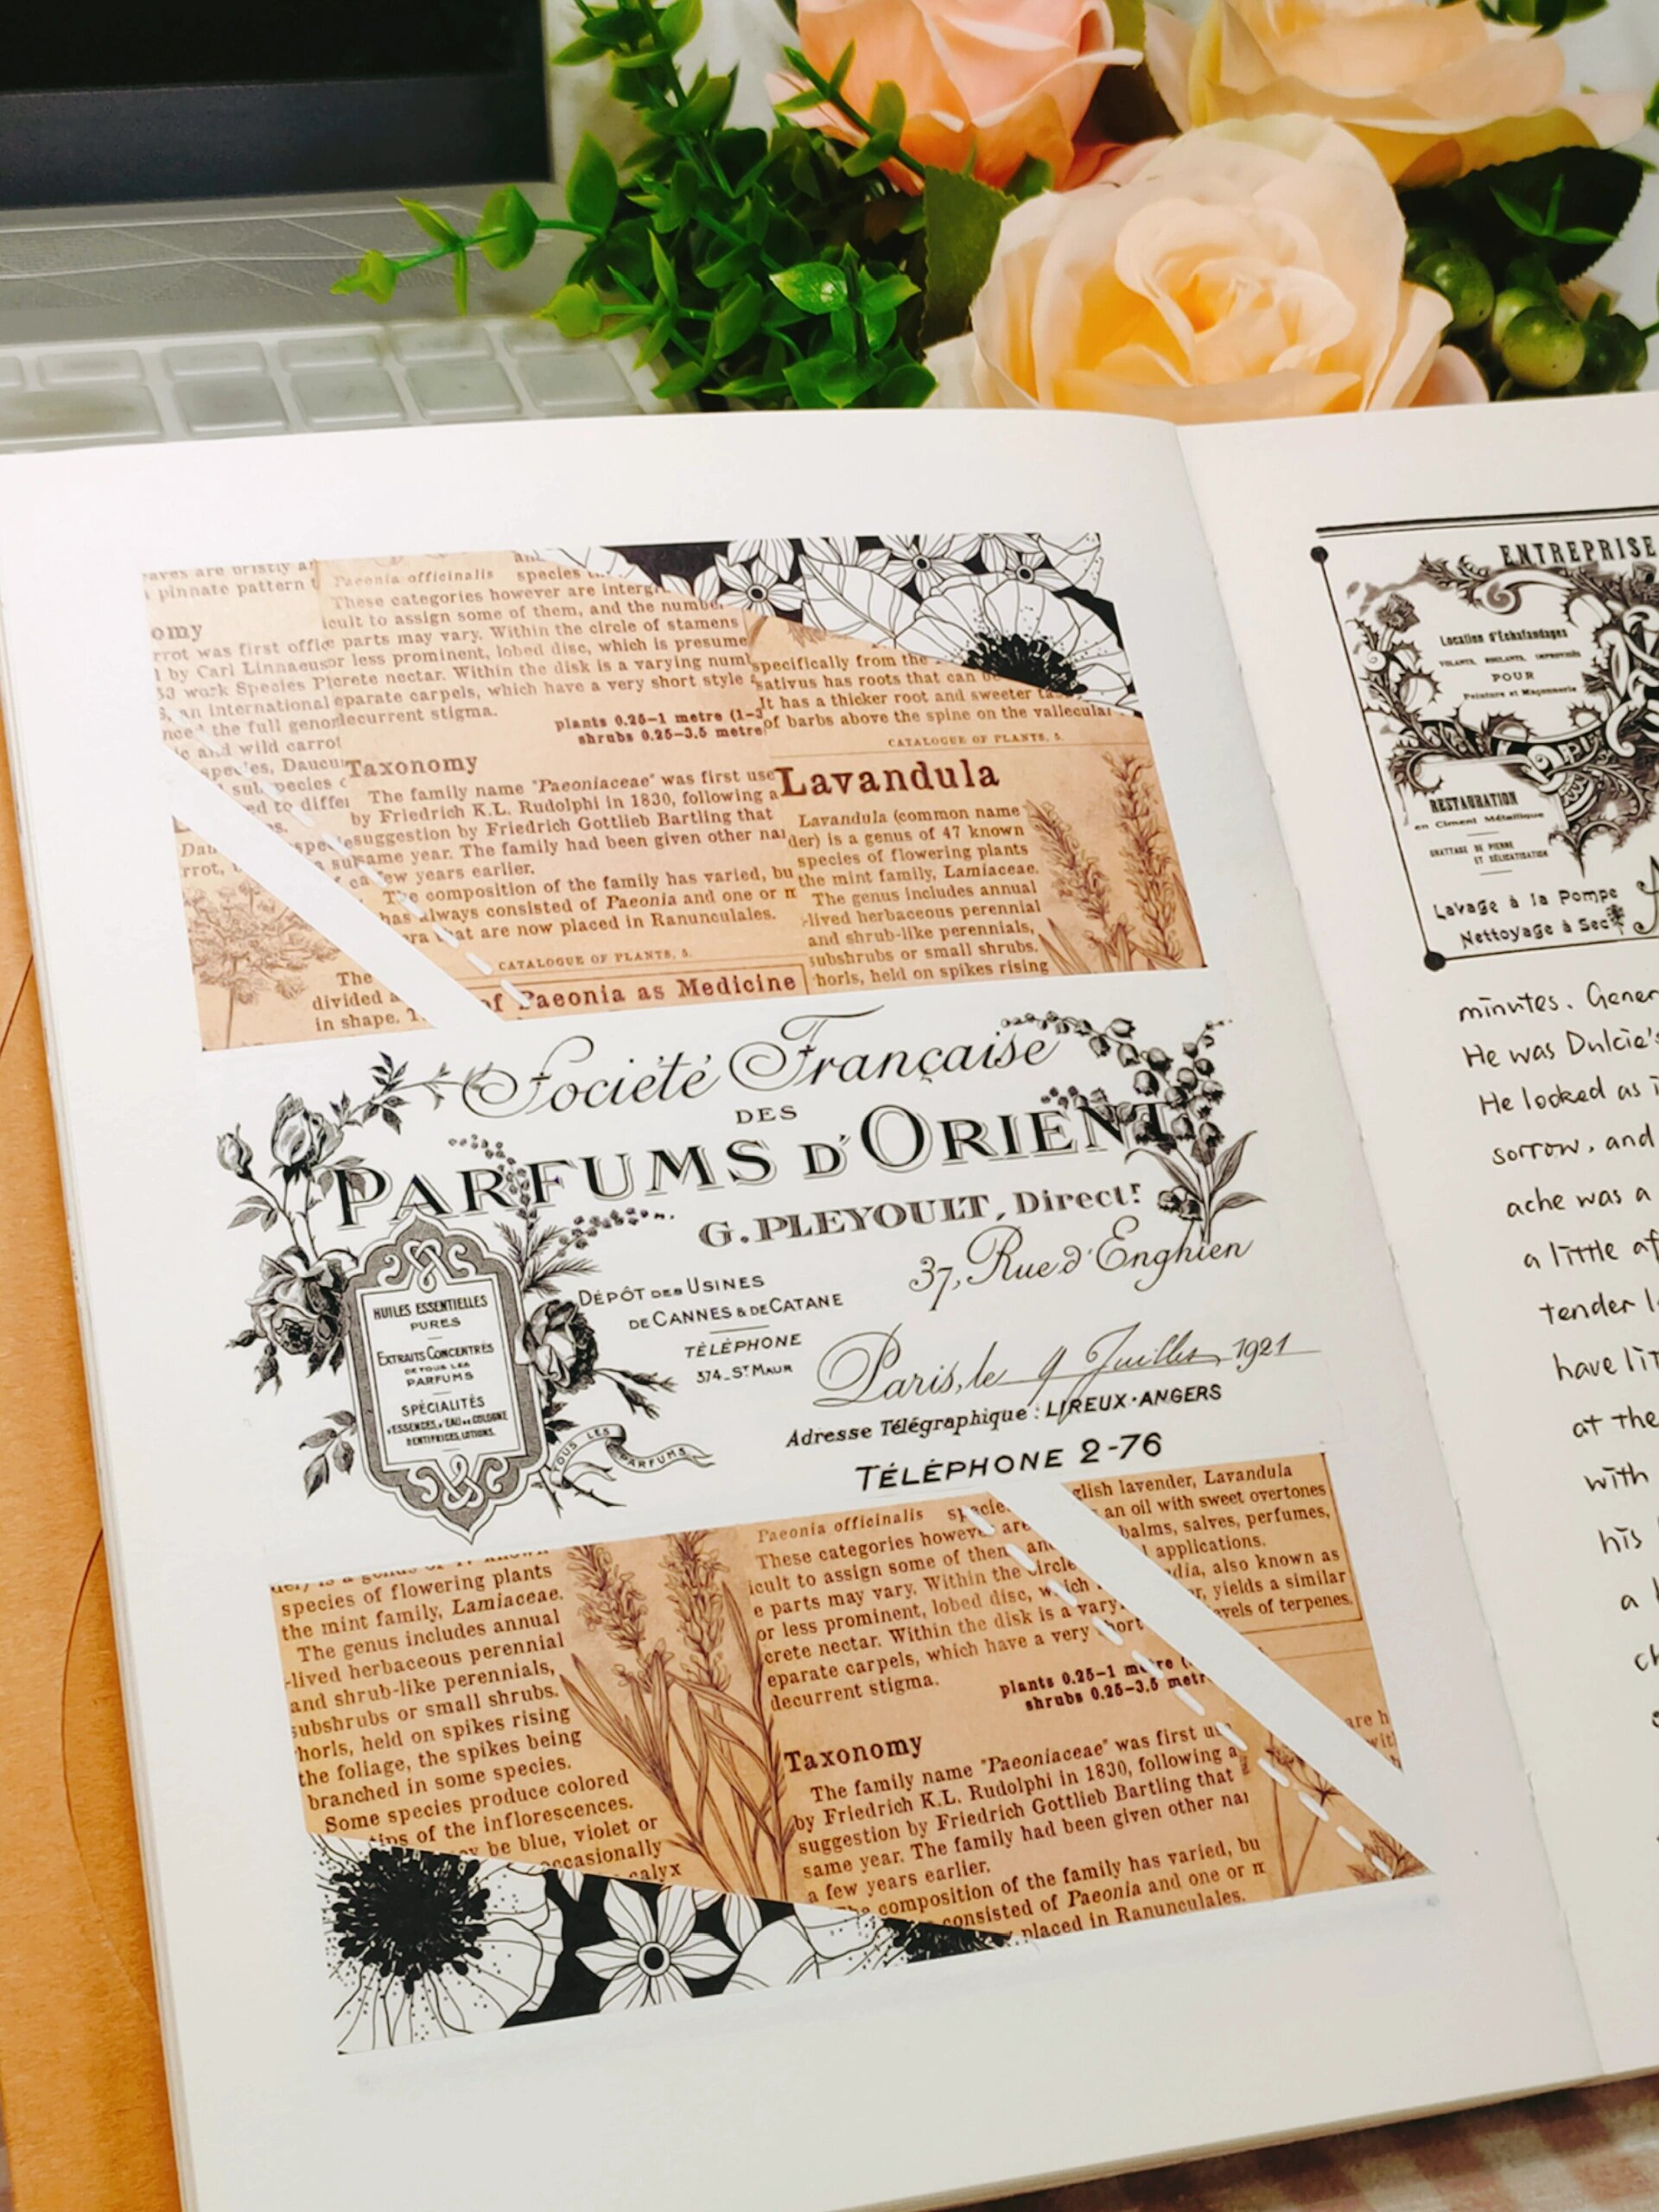 aves are bristly
pinnate pattern
omy
rrot was first offic
l by Carl Linnaeus
work Species Pl
an international
the full geno
and wild carrot
species, Daucu
sub species
ed to differ
Paeonia officinalis species
These categories however are interg
icult to assign some of them, and the number
e parts may vary. Within the circle of stamens
or less prominent, lobed disc, which is presume
crete nectar. Within the disk is a varying num
eparate carpels, which have a very short style
decurrent stigma.
plants 0.25-1 metre (1-3
shrubs 0.25-3.5 metre
Taxonomy
The family name "Paeoniaceae" was first use
by Friedrich K.L. Rudolphi in 1830, following a
suggestion by Friedrich Gottlieb Bartling that
same year. The family had been given other nai
few years earlier.
composition of the family has varied, bu
has always consisted of Paeonia and one or
that are now placed in Ranunculales.
CATALOGUE OF PLANTS, 5.
of Paeonia as Medicine
The
divided
in shape.
specifically from the
sativus has roots that can
It has a thicker root and sweeter
of barbs above the spine on the vallecular
CATALOGUE OF PLANTS, 5.
Lavandula
Lavandula (common name
der) is a genus of 47 known
species of flowering plants
the mint family, Lamiaceae.
The genus includes annual
-lived herbaceous perennial
and shrub-like perennials,
subshrubs or small shrubs.
horls, held on spikes rising
Société Française
DES
PARFUMS D'ORIENT
G. PLEYOULT, Direct.r
37, Rue d'Enghien
HUILES ESSENTIELLES
PURES
EXTRAITS CONCENTRÉS
DE TOUS LES
PARFUMS
SPÉCIALITÉS
D'ESSENCES, D'EAU DE COLOGNE
DENTIFRICES, LOTIONS.
TOUS LES PARFUMS
DÉPÔT DES USINES
DE CANNES & DE CATANE
TÉLÉPHONE
374_ST MAUR
Paris, le 9 Juillet 1921
Adresse Télégraphique: LIREUX-ANGERS
TÉLÉPHONE 2-76
species of flowering plants
the mint family, Lamiaceae.
The genus includes annual
-lived herbaceous perennial
and shrub-like perennials,
subshrubs or small shrubs.
horls, held on spikes rising
the foliage, the spikes being
branched in some species.
Some species produce colored
tips of the inflorescences.
be blue, violet or
occasionally
calyx
Paeonia officinalis specie
These categories however are
icult to assign some of them, and
e parts may vary. Within the circle
or less prominent, lobed disc, which
crete nectar. Within the disk is a vary
eparate carpels, which have a very short
decurrent stigma.
plants 0.25-1 metre
shrubs 0.25-3.5 metr
Taxonomy
The family name "Paeoniaceae" was first
by Friedrich K.L. Rudolphi in 1830, following a
suggestion by Friedrich Gottlieb Bartling that
same year. The family had been given other nai
a few years earlier.
composition of the family has varied, bu
consisted of Paeonia and one or
placed in Ranunculales.
glish lavender, Lavandula
an oil with sweet overtones
balms, salves, perfumes,
applications.
dia, also known as
yields a similar
evels of terpenes.
are h
wit
ENTREPRISE
Location d'Echafaudages
VOLANTS, ROULANTS, IMPROVISÉS
POUR
Peinture et Maçonnerie
RESTAURATION
en Ciment Métallique
GRATTAGE DE PIERRE
Lavage à la Pompe
Nettoyage à Sec
minutes. Gener
He was Dulcie's
He looked as i
sorrow, and
ache was a
a little af
tender l
have lit
at the
with
his
a
ch